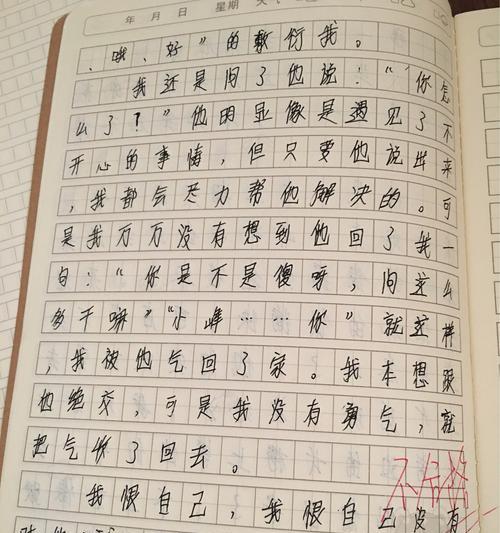 年 月 日 星期 天
、哦、好”的敷衍我。
我还是问了他说：“你怎
么了？”他明显像是遇见了不
开心的事情，但只要他说出来
，我都会尽力帮他解决的。可
是我万万没有想到他回了我一
句：“你是不是傻呀，问这么
多干嘛”“小峰……你”就这样
，我被他气回了家。我本想跟
他绝交，可是我没有勇气，就
把气收了回去。
我恨自己，我恨自己没有
不合格